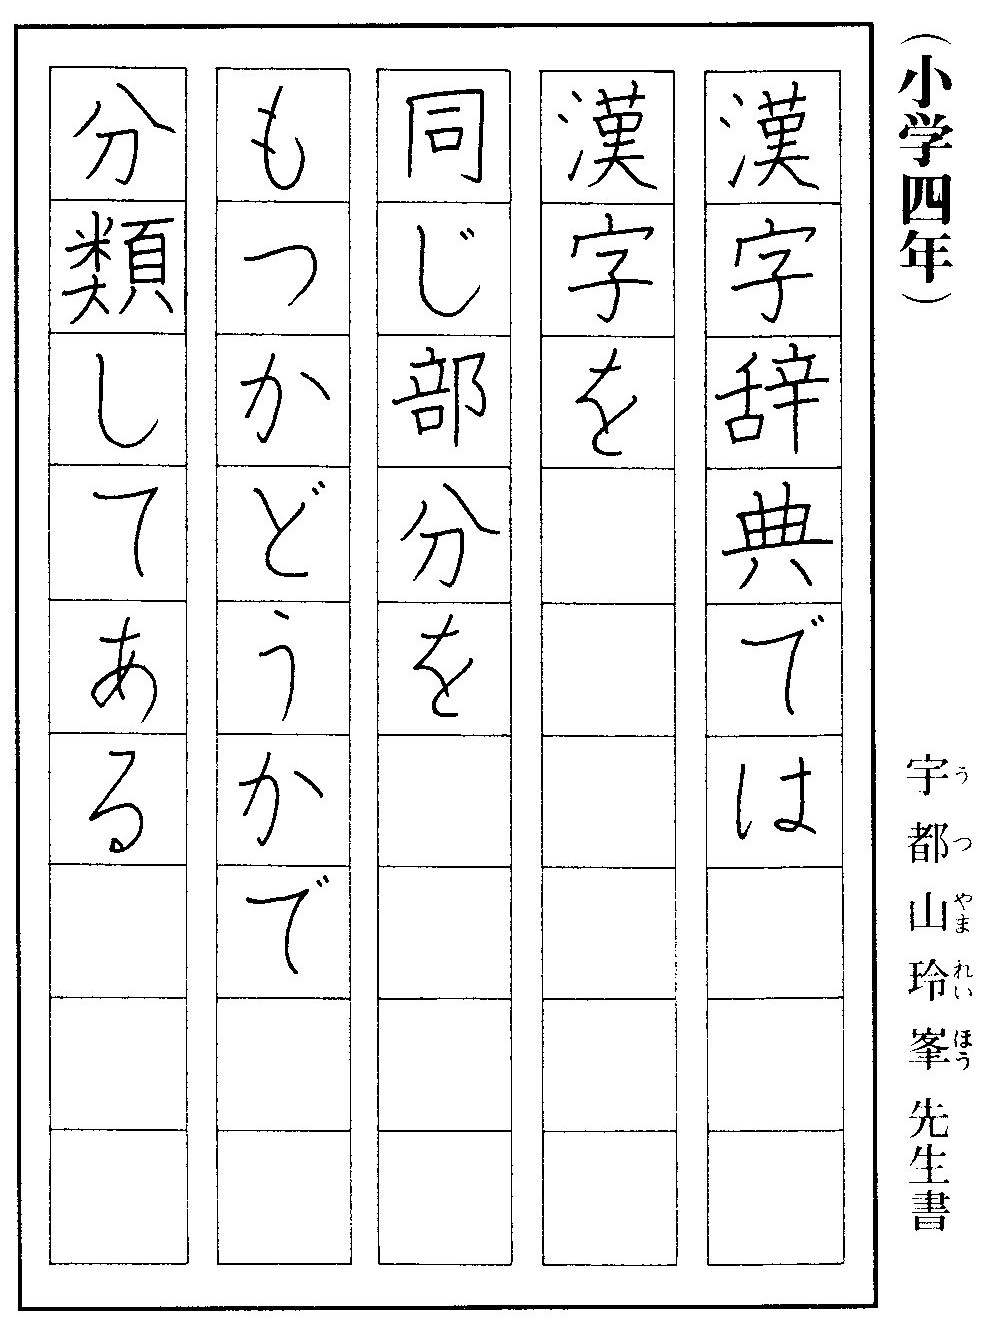 （小学四年）
宇都山玲峯先生書
うつやまれいほう
漢字辞典では
漢字を
同じ部分を
もつかどうかで
分類してある